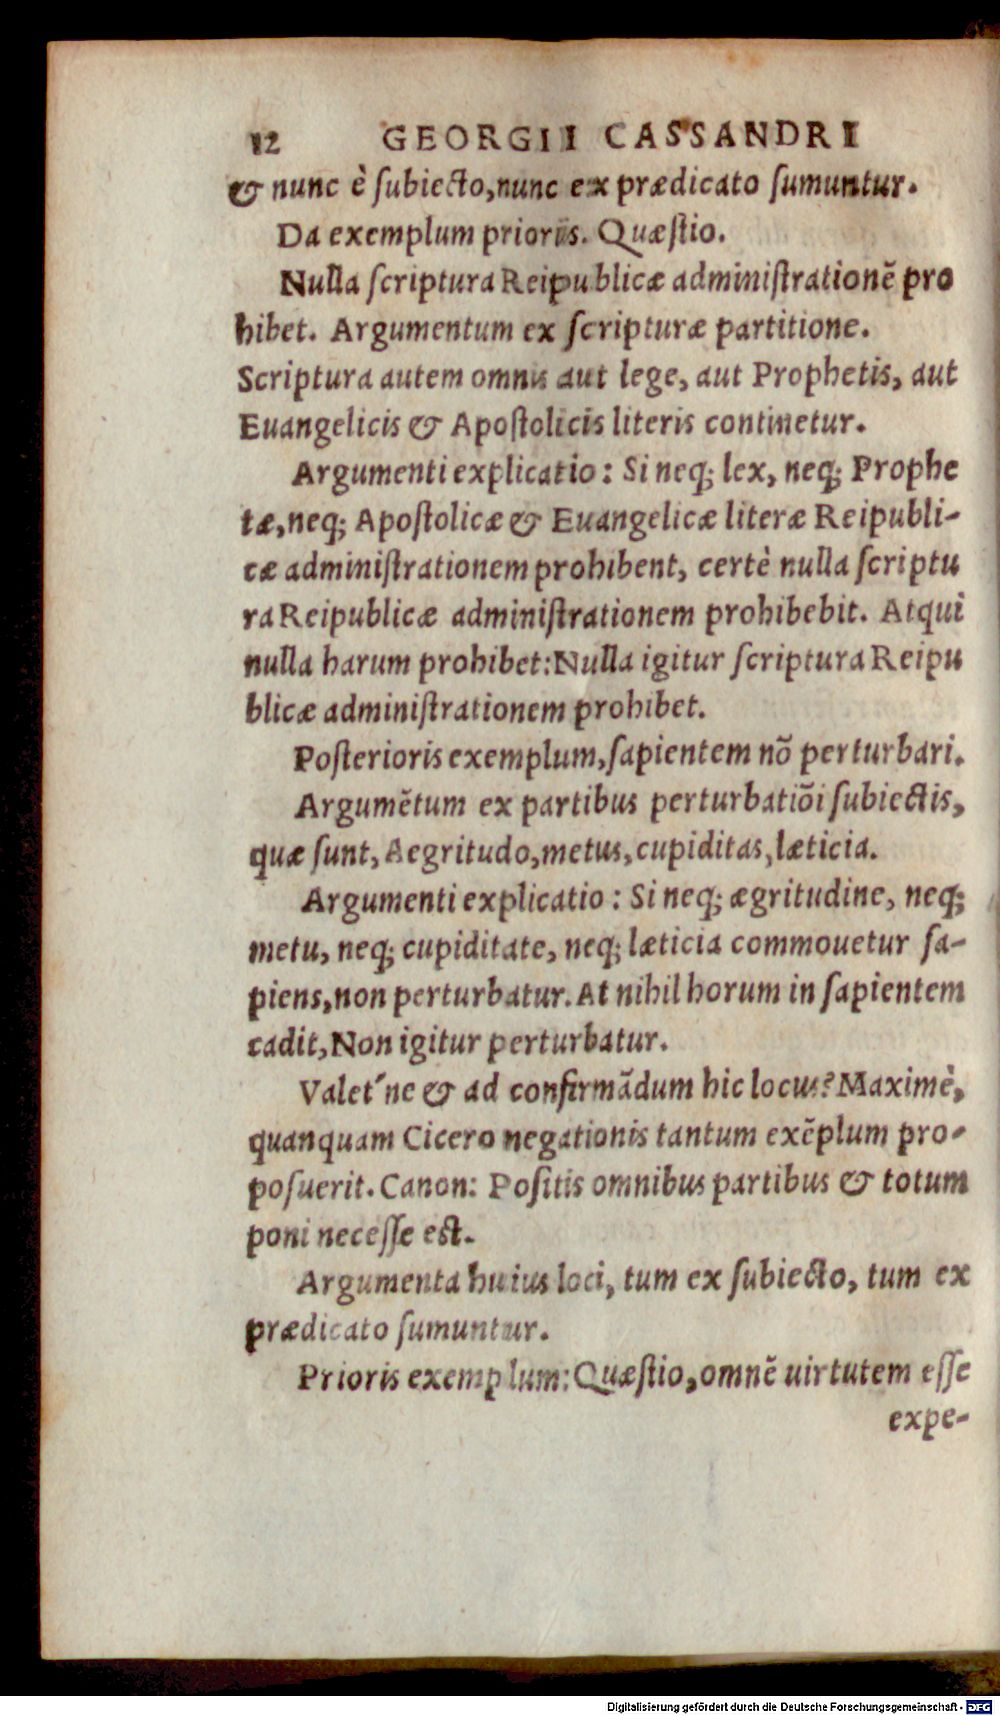 12 GEORGII CASSANDRI
& nunc è ſubiecto, nunc ex prædicato ſumuntur.
Da exemplum prioris. Quæſtio.
Nulla ſcriptura Reipublicæ adminiſtrationẽ pro
hibet. Argumentum ex ſcripturæ partitione.
Scriptura autem omnis aut lege, aut Prophetis, aut
Euangelicis & Apoſtolicis literis continetur.
Argumenti explicatio: Si neq; lex, neq; Prophe
tæ, neq; Apoſtolicæ & Euangelicæ literæ Reipubli-
cæ adminiſtrationem prohibent, certè nulla ſcriptu
ra Reipublicæ adminiſtrationem prohibebit. Atqui
nulla harum prohibet: Nulla igitur ſcriptura Reipu
blicæ adminiſtrationem prohibet.
Poſterioris exemplum, ſapientem nõ perturbari.
Argumẽtum ex partibus perturbatiõi ſubiectis,
quæ ſunt, Aegritudo, metus, cupiditas, læticia.
Argumenti explicatio: Si neq; ægritudine, neq;
metu, neq; cupiditate, neq; læticia commouetur ſa-
piens, non perturbatur. At nihil horum in ſapientem
cadit, Non igitur perturbatur.
Valet´ne & ad confirmãdum hic locus? Maximè,
quanquam Cicero negationis tantum exẽplum pro-
poſuerit. Canon: Poſitis omnibus partibus & totum
poni neceſſe eſt.
Argumenta huius loci, tum ex ſubiecto, tum ex
prædicato ſumuntur.
Prioris exemplum: Quæſtio, omnẽ uirtutem eſſe
expe-
Digitalisierung gefördert durch die Deutsche Forschungsgemeinschaft - DFG